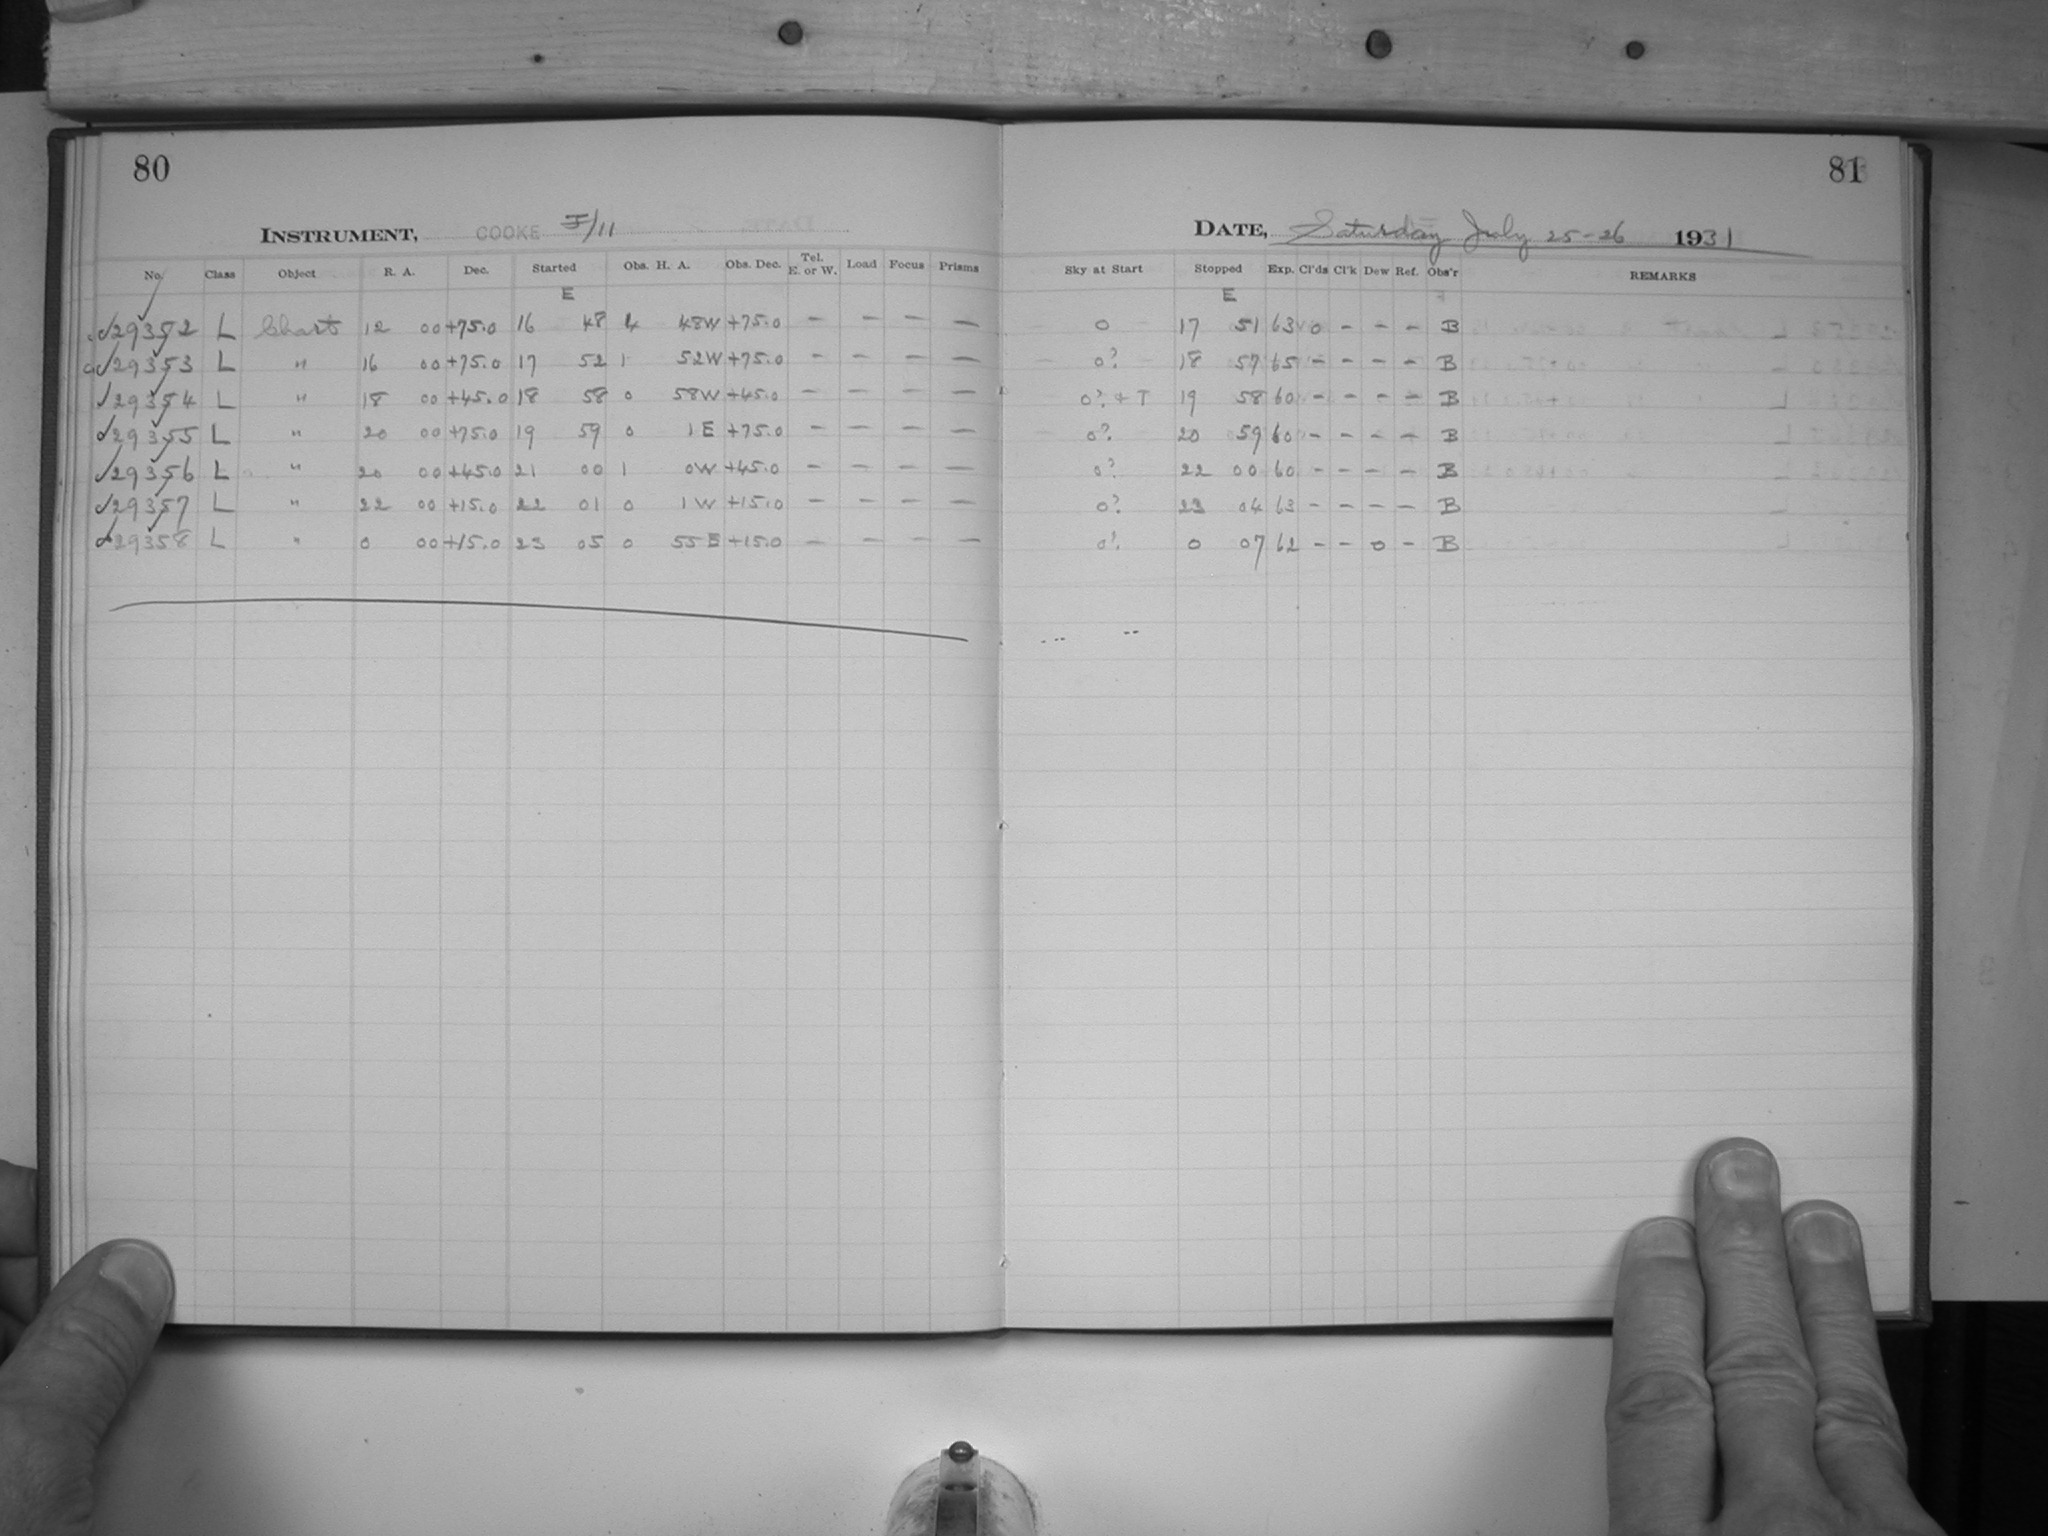 80
INSTRUMENT, COOKE I/11
No. Class Object R. A. Dec. Started Obs. H. A. Obs. Dec. Tel. E. or W. Load Focus Prisms
E
29352 L Chart 12 00 +75.0 16 48 4 48W +75.0 - - - -
29353 L " 16 00 +75.0 17 52 1 52W +75.0 - - - -
29354 L " 18 00 +45.0 18 58 0 58W +45.0 - - - -
29355 L " 20 00 +75.0 19 59 0 1E +75.0 - - - -
29356 L " 20 00 +45.0 21 00 1 0W +45.0 - - - -
29357 L " 22 00 +15.0 22 01 0 1W +15.0 - - - -
29358 L " 0 00 +15.0 23 05 0 55E +15.0 - - - -
81
DATE, Saturday July 25-26 1931
Sky at Start Stopped Exp. Cl'ds Cl'k Dew Ref. Obs'r REMARKS
E
0 17 51 63 0 - - - B
0? 18 57 65 - - - - B
0? + T 19 58 60 - - - - B
0? 20 59 60 - - - - B
0? 22 00 60 - - - - B
0? 23 04 63 - - - - B
0? 0 07 62 - - 0 - B